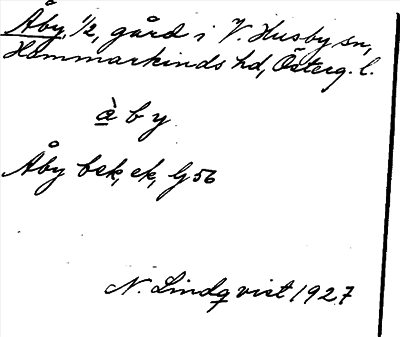 Åby 1/2, gård i V. Husby sn,
Hammarkinds hd, Österg. l.
å̀ b y
Åby bek, ek, G 56
N. Lindqvist 1927